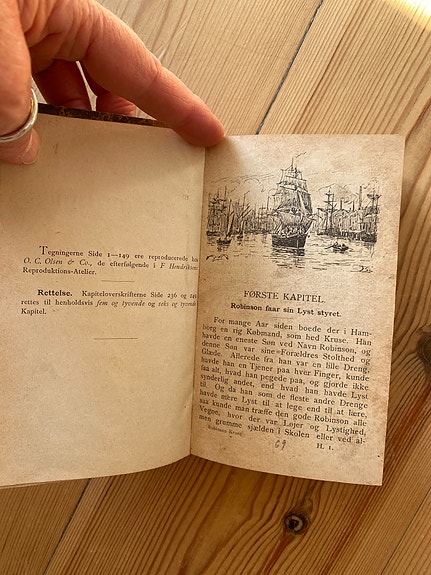 Tegningerne Side 1—149 ere reproducerede hos
O. C. Olsen & Co., de efterfølgende i F Hendriksens
Reproduktions-Atelier.
Rettelse. Kapiteloverskrifterne Side 236 og 241
rettes til henholdsvis fem og tyvende og seks og tyvende
Kapitel.
FØRSTE KAPITEL.
Robinson faar sin Lyst styret.
For mange Aar siden boede der i Ham-
borg en rig Købmand, som hed Kruse. Han
havde en eneste Søn ved Navn Robinson, og
denne Søn var sine Forældres Stolthed og
Glæde. Allerede fra han var en lille Dreng,
havde han en Tjener paa hver Finger, kunde
faa alt, hvad han pegede paa, og gjorde ikke
synderlig andet, end hvad han havde Lyst
til. Og da han som de fleste andre Drenge
havde mere Lyst til at lege end til at lære,
saa kunde man træffe den gode Robinson alle
Vegne, hvor der var Løjer og Lystighed,
men grumme sjælden i Skolen eller ved al-
Robinson Kruse.
H. 1.
69